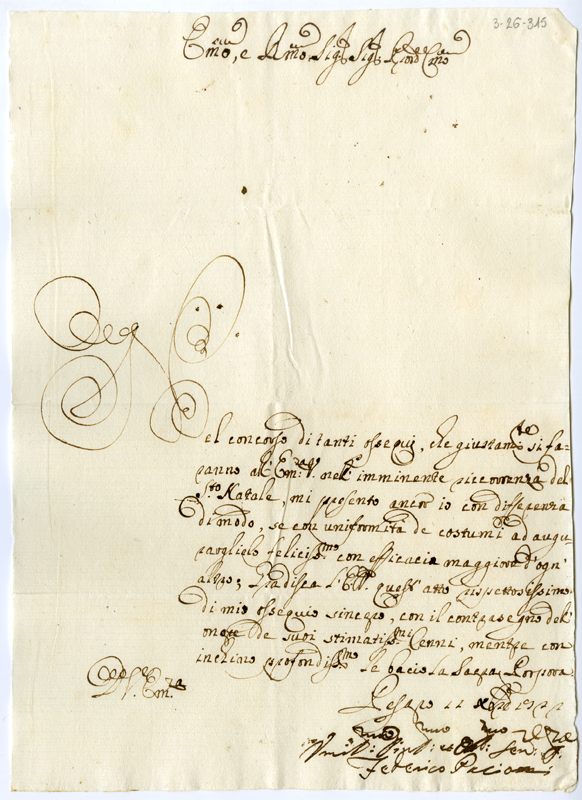 3-26-315
Emo, e Rmo Sigr, Sigr
Nel concorso di tanti ossequi, che giustamte si fa-
ranno all'Emza V. nell'imminente ricorrenza del
Sto Natale, mi presento ancor io con differenza
di modo, se con uniformità de costumi ad augu
rarglielo felicissmo con efficacia maggiore d'ogn'
altro; Gradisca l'E.V. quest'atto rispettosissimo
di mio ossequio sincero, con il contrasegno dell'
onore de suoi stimatissmi Cenni, mentre con
inchino profondissmo le bacio la Sacra Porpora
Di V. Emza
Pesaro 11
Federico